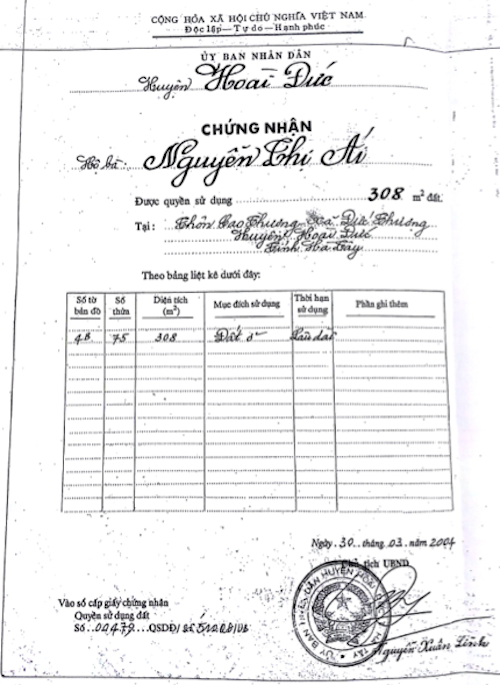 CỘNG HÒA XÃ HỘI CHỦ NGHĨA VIỆT NAM
Độc lập — Tự do — Hạnh phúc
ỦY BAN NHÂN DÂN
Huyện Hoài Đức
CHỨNG NHẬN
Hộ bà: Nguyễn Thị Ái
Được quyền sử dụng 308 m² đất.
Tại: Thôn Cao Thượng Xã Đức Thượng
Huyện Hoài Đức
Tỉnh Hà Tây
Theo bảng liệt kê dưới đây:
Số tờ bản đồ Số thửa Diện tích (m²) Mục đích sử dụng Thời hạn sử dụng Phần ghi thêm
4B 75 308 Đất ở Lâu dài
Ngày 30 tháng 03 năm 2004
Chủ tịch UBND
Vào sổ cấp giấy chứng nhận
Quyền sử dụng đất
Số 00479 QSDĐ/
Nguyễn Xuân Linh